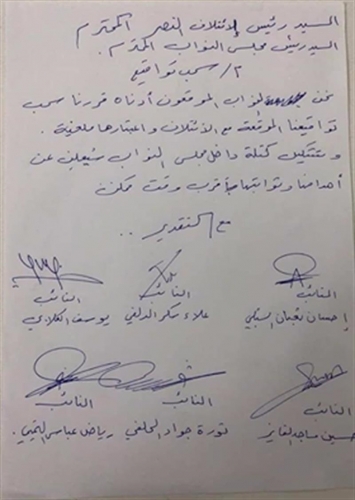 السيد رئيس الائتلاف النصر المحترم
السيد رئيس مجلس النواب المحترم .
م/ سحب تواقيع
نحن النواب الموقعون أدناه قررنا سحب
تواقيعنا الموقعة مع الائتلاف واعتبارها ملغية .
وستتشكل كتلة داخل مجلس النواب سيعلن عن
أهدافها وثوابتها بأقرب وقت ممكن
مع التقدير ..
النائب النائب النائب
إحسان ثعبان السبكي علاء سكر الدلفي يوسف الكلابي
النائب النائب النائب
حسين ماجد الفايز نورة جواد الحلفي رياض عباس التميمي .